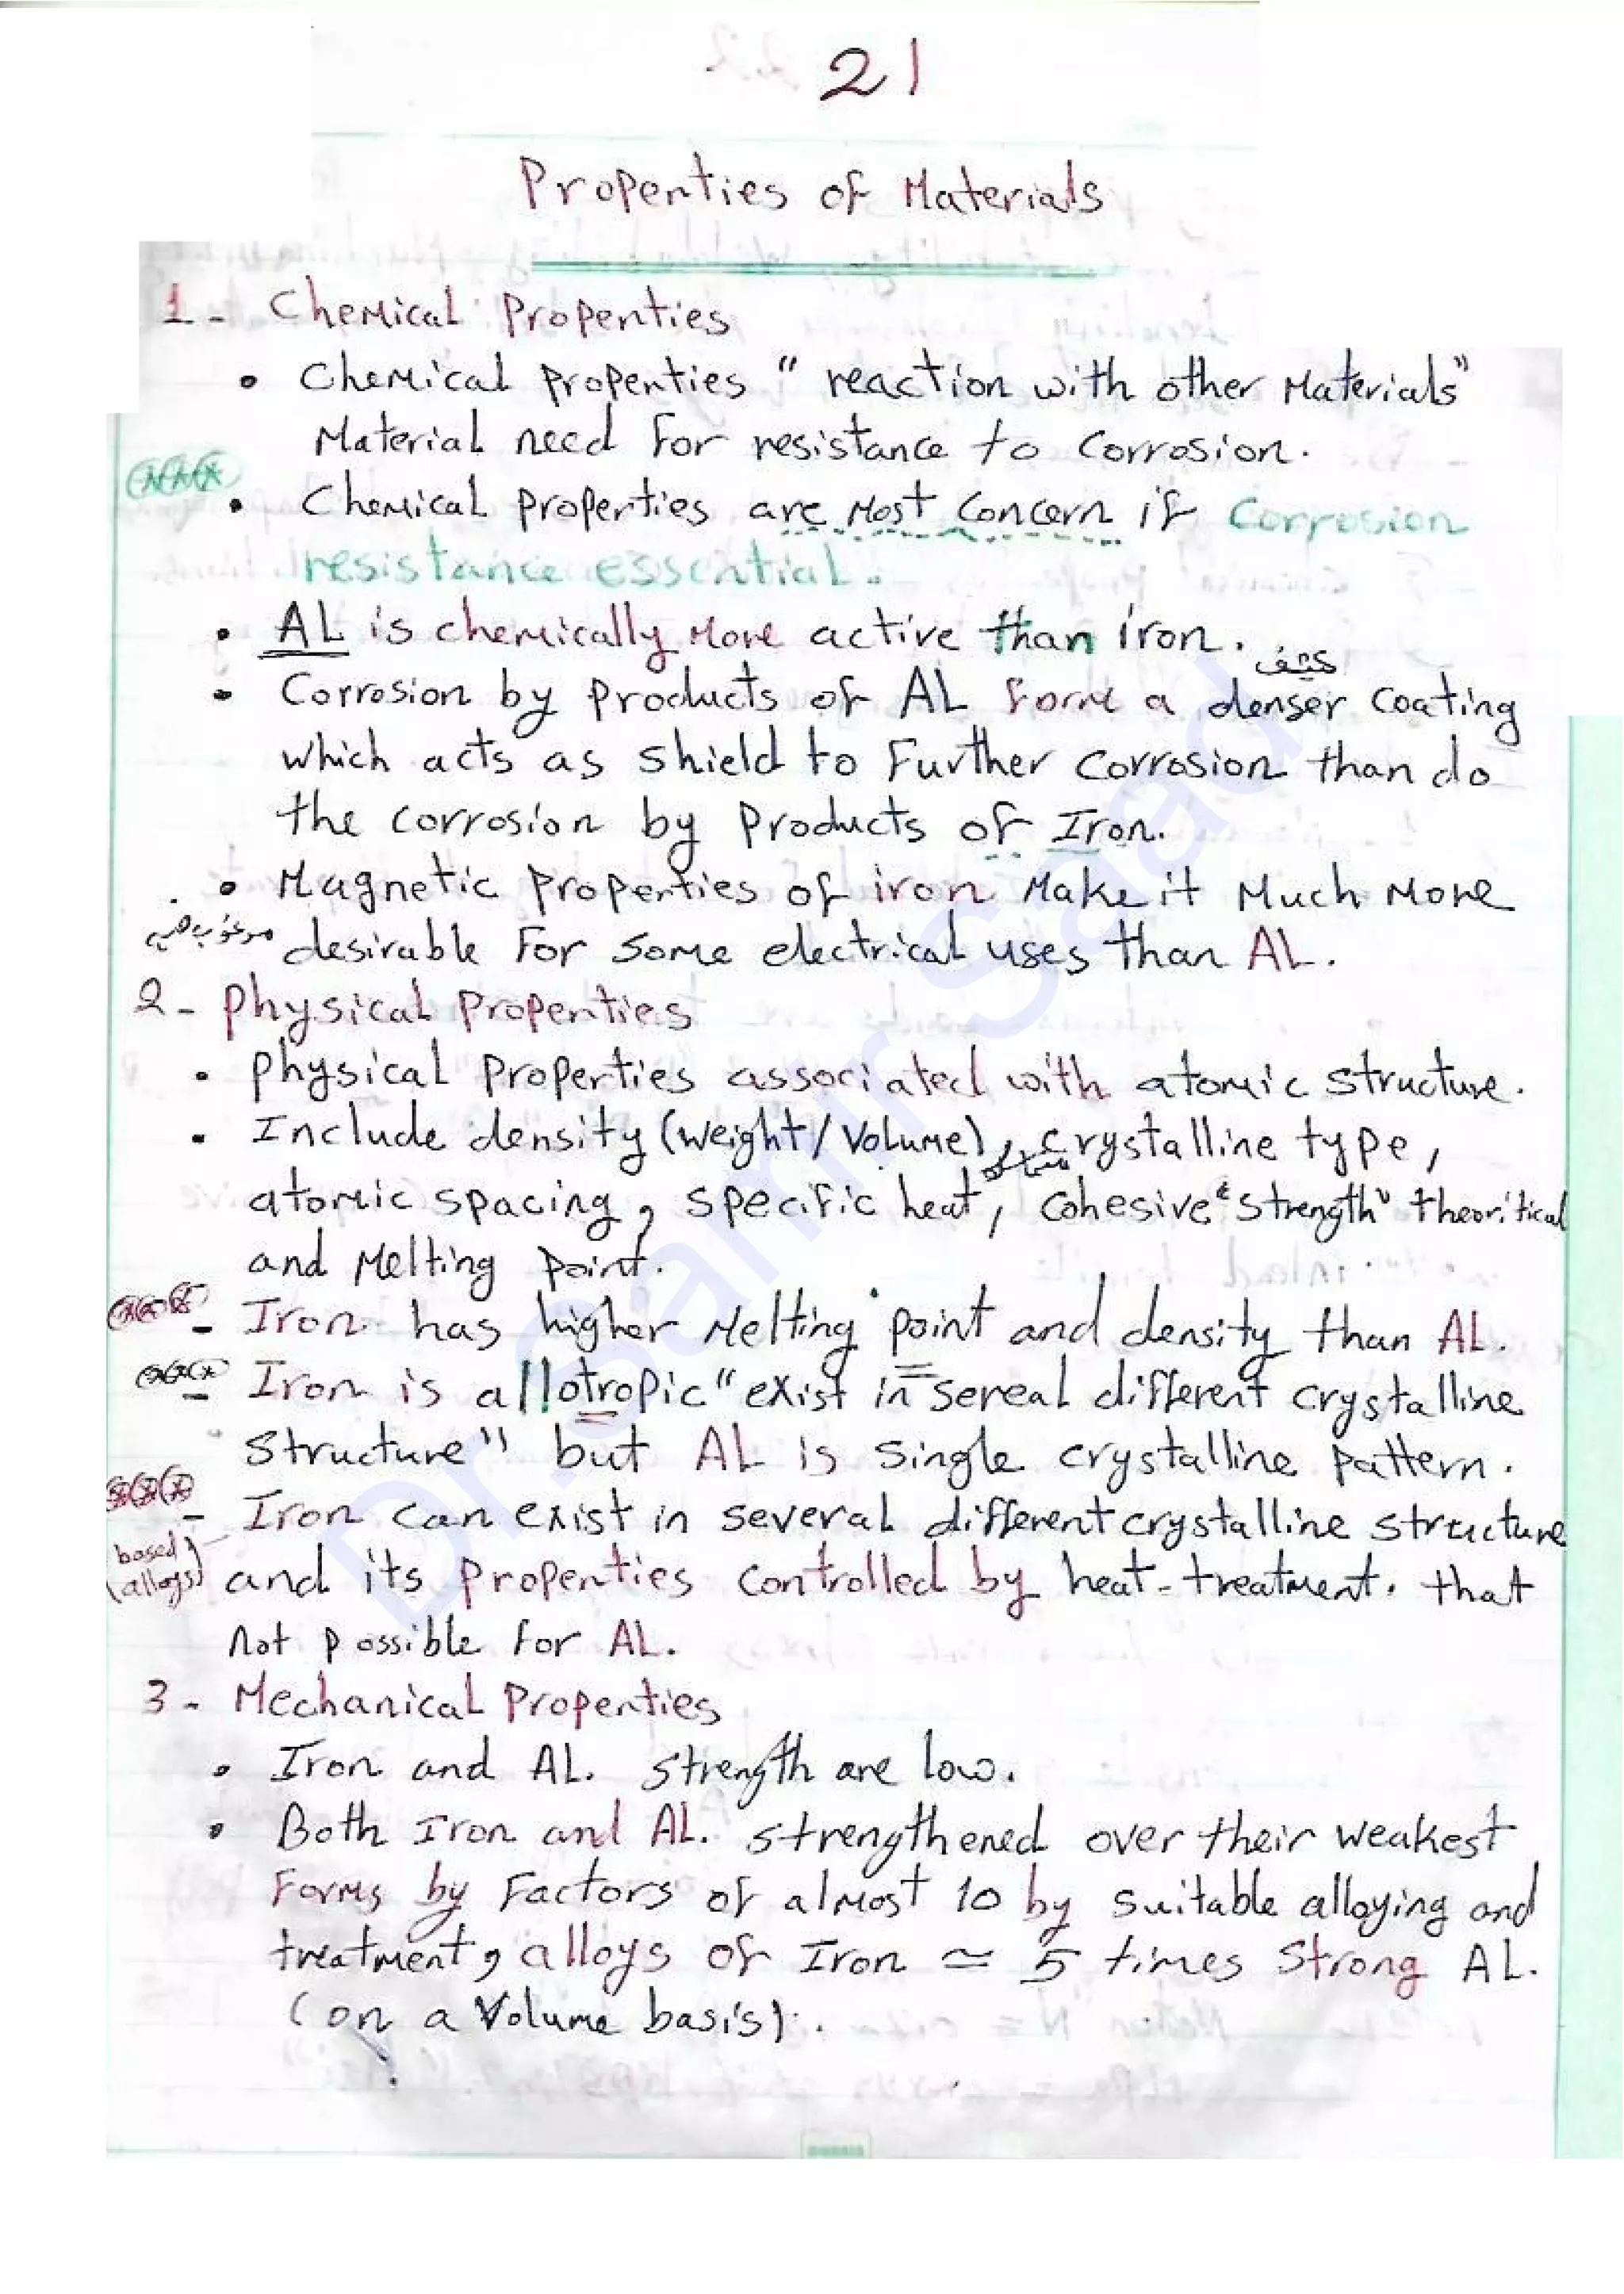 21
Properties of Materials
1- Chemical Properties
• Chemical properties "reaction with other Materials"
Material need for resistance to Corrosion.
• Chemical properties are Most Concern if Corrosion
resistance essential.
• AL is chemically More active than iron.
كثيف
• Corrosion by products of AL form a denser coating
which acts as shield to further corrosion than do
the corrosion by products of Iron.
• Magnetic properties of iron Make it Much More
مرغوب فيه
desirable for some electrical uses than AL.
2- Physical Properties
• Physical properties associated with atomic structure.
• Include density (weight/volume), crystalline type,
atomic spacing, specific heat, cohesive "strength" theoritical
and Melting point.
- Iron has higher Melting point and density than AL.
- Iron is allotropic "exist in sereal different crystalline
structure" but AL is single crystalline pattern.
- Iron can exist in several different crystalline structure
(based alloys)
and its properties controlled by heat-treatment. that
not possible for AL.
3- Mechanical Properties
• Iron and AL. strength are low.
• Both Iron and AL. strengthened over their weakest
forms by Factors of almost 10 by suitable alloying and
treatment, alloys of Iron ≃ 5 times strong AL.
(on a volume basis).
Dr. Samir Saad